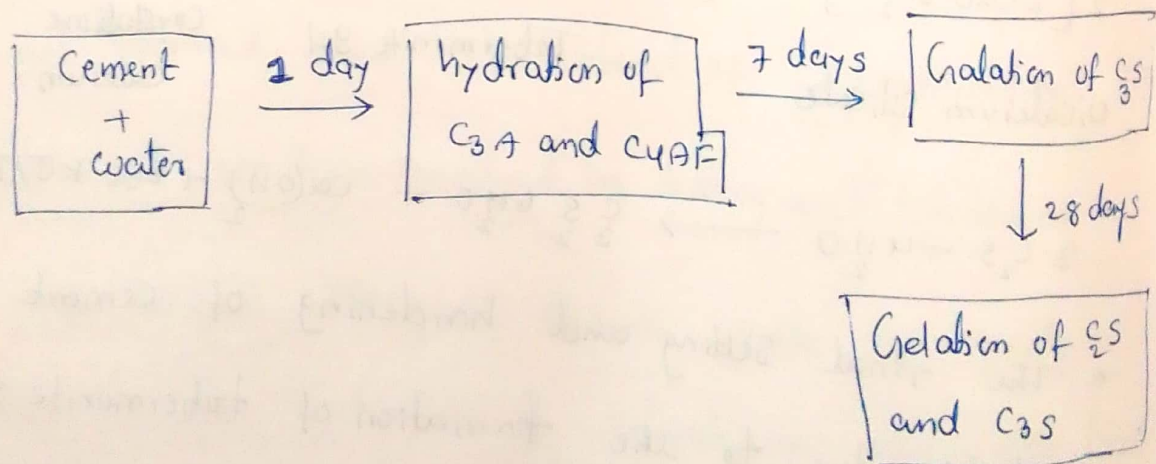 Cement
+
water
1 day
hydration of
C3A and C4AF
7 days
Galation of C3S
28 days
Gelation of C2S
and C3S